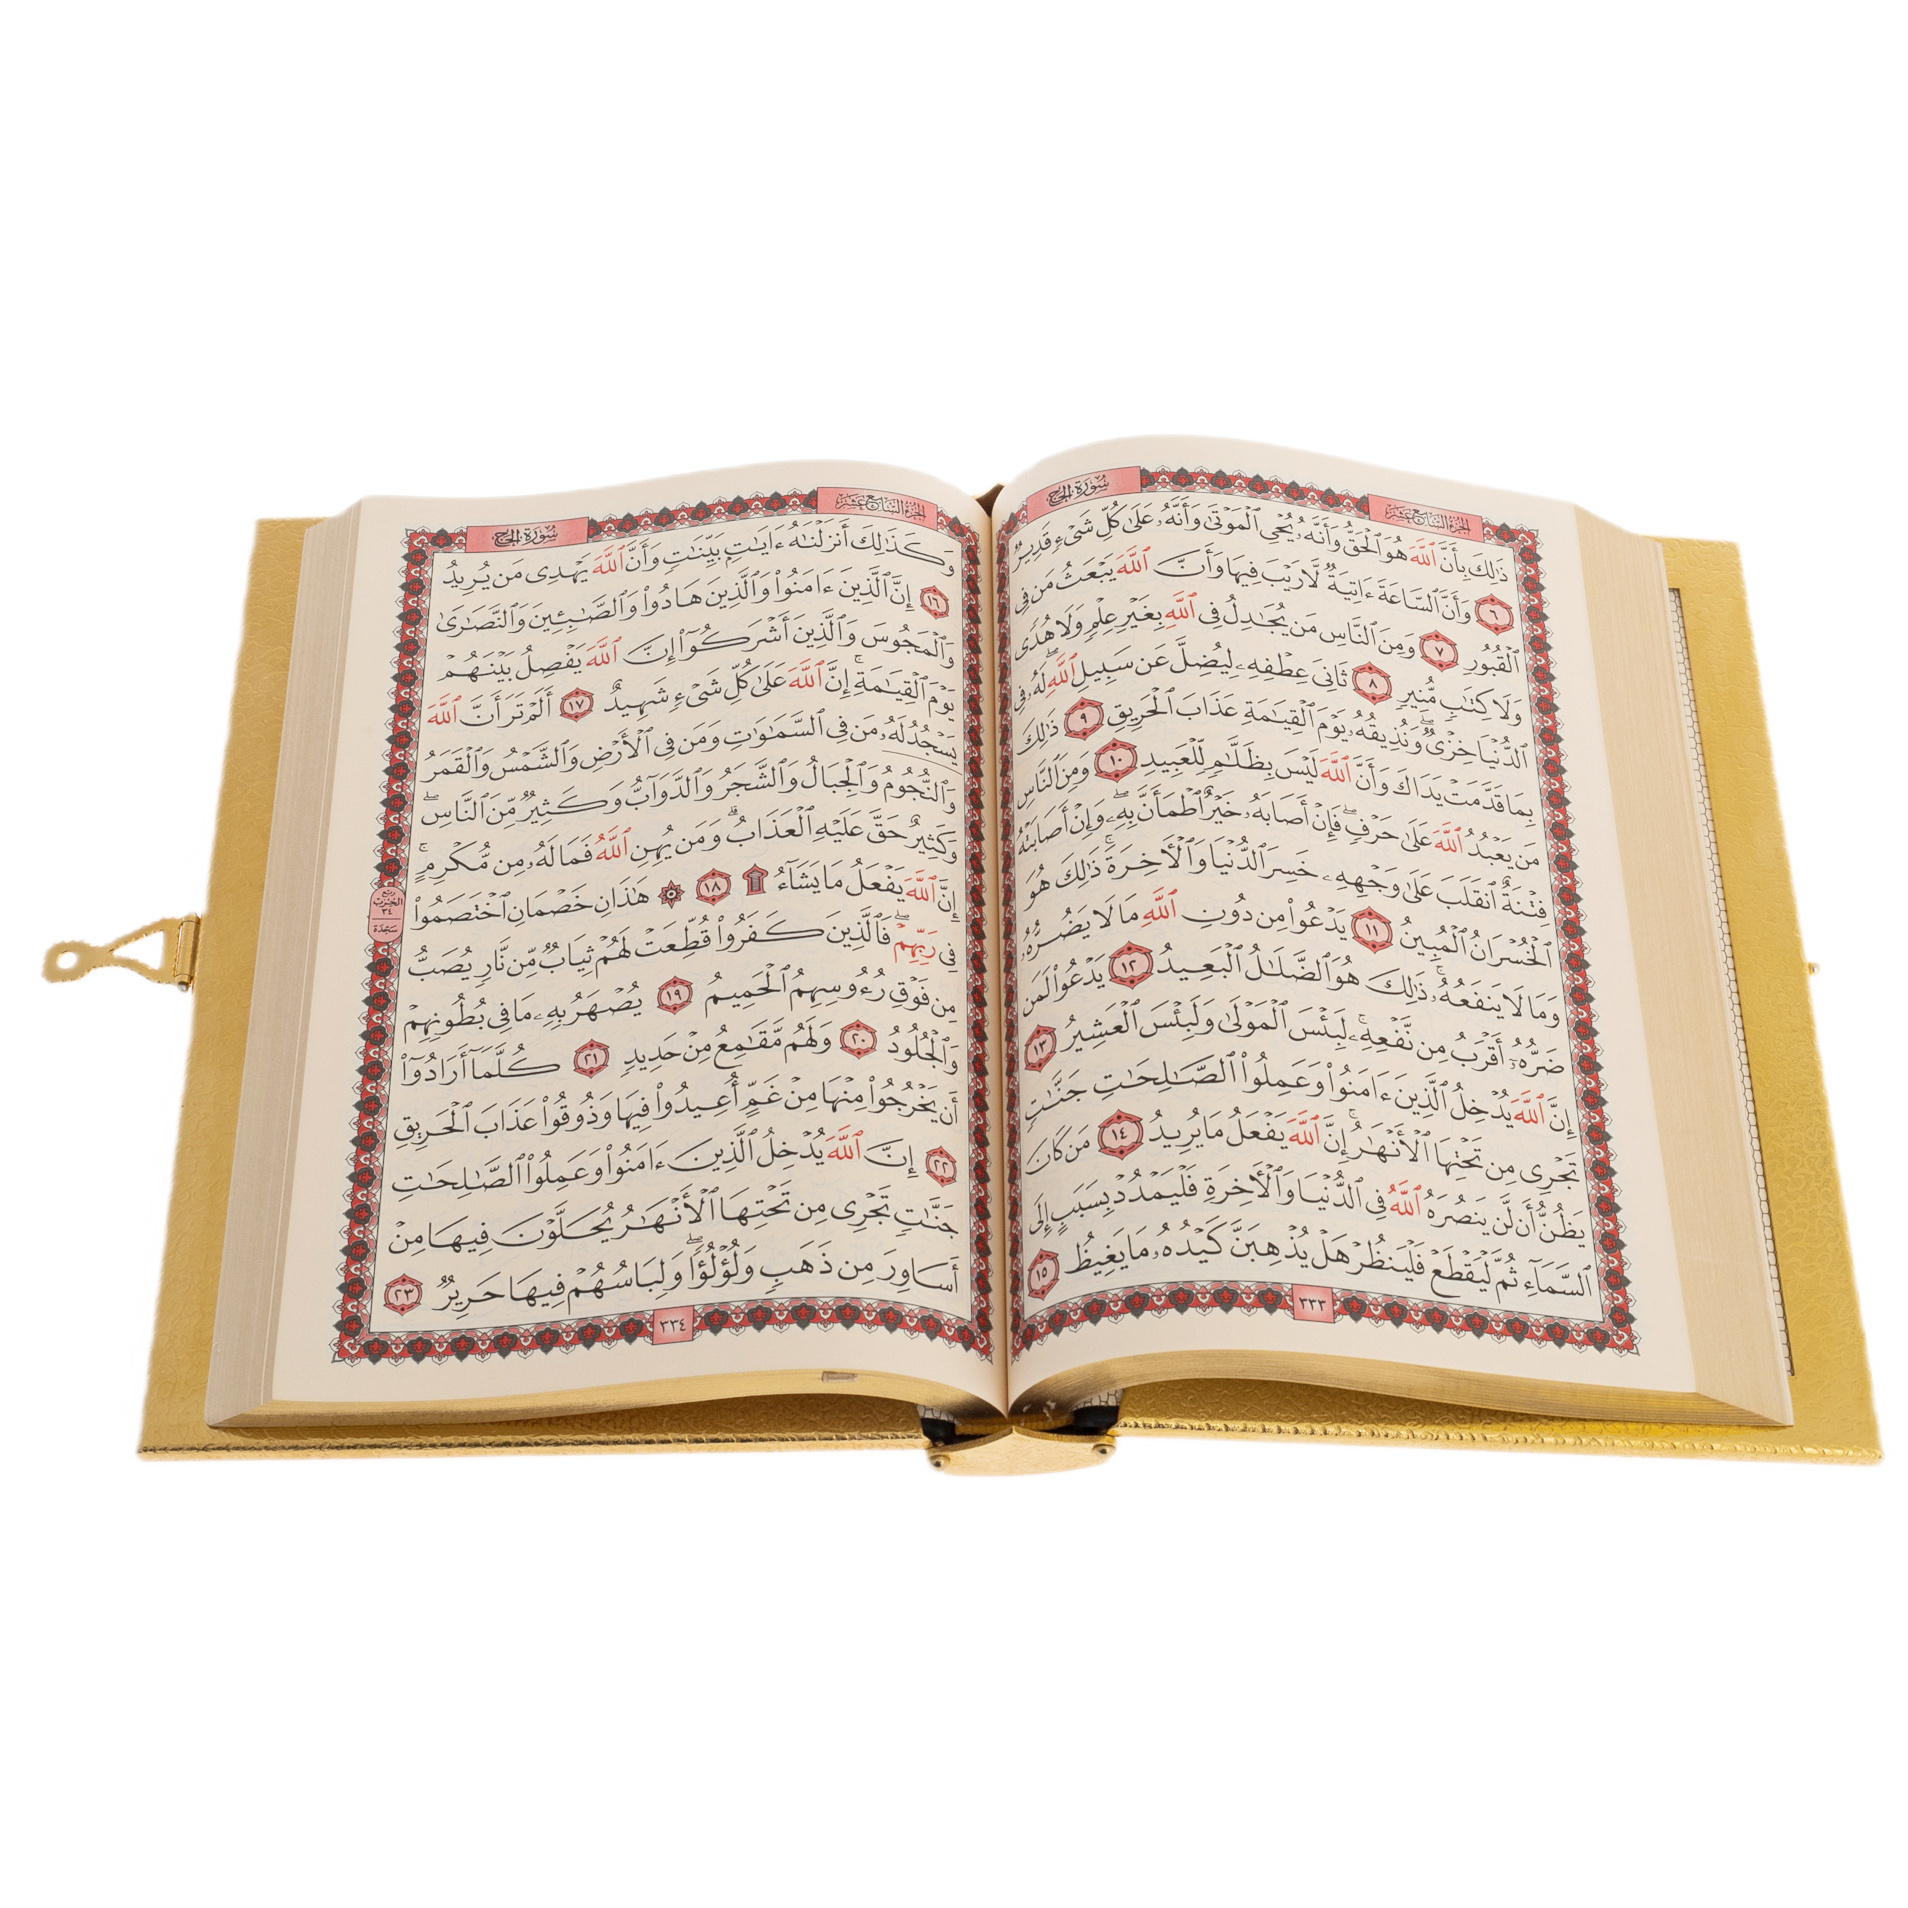 الجزء السابع عشر
سورة الحج
ذَٰلِكَ بِأَنَّ ٱللَّهَ هُوَ ٱلْحَقُّ وَأَنَّهُۥ يُحْىِ ٱلْمَوْتَىٰ وَأَنَّهُۥ عَلَىٰ كُلِّ شَىْءٍ قَدِيرٌ
٦ وَأَنَّ ٱلسَّاعَةَ ءَاتِيَةٌ لَّا رَيْبَ فِيهَا وَأَنَّ ٱللَّهَ يَبْعَثُ مَن فِى
ٱلْقُبُورِ ٧ وَمِنَ ٱلنَّاسِ مَن يُجَـٰدِلُ فِى ٱللَّهِ بِغَيْرِ عِلْمٍ وَلَا هُدًى
وَلَا كِتَـٰبٍ مُّنِيرٍ ٨ ثَانِىَ عِطْفِهِۦ لِيُضِلَّ عَن سَبِيلِ ٱللَّهِۖ لَهُۥ فِى
ٱلدُّنْيَا خِزْىٌۖ وَنُذِيقُهُۥ يَوْمَ ٱلْقِيَـٰمَةِ عَذَابَ ٱلْحَرِيقِ ٩ ذَٰلِكَ
بِمَا قَدَّمَتْ يَدَاكَ وَأَنَّ ٱللَّهَ لَيْسَ بِظَلَّـٰمٍ لِّلْعَبِيدِ ١٠ وَمِنَ ٱلنَّاسِ
مَن يَعْبُدُ ٱللَّهَ عَلَىٰ حَرْفٍۖ فَإِنْ أَصَابَهُۥ خَيْرٌ ٱطْمَأَنَّ بِهِۦۖ وَإِنْ أَصَابَتْهُ
فِتْنَةٌ ٱنقَلَبَ عَلَىٰ وَجْهِهِۦ خَسِرَ ٱلدُّنْيَا وَٱلْأَخِرَةَۚ ذَٰلِكَ هُوَ
ٱلْخُسْرَانُ ٱلْمُبِينُ ١١ يَدْعُوا۟ مِن دُونِ ٱللَّهِ مَا لَا يَضُرُّهُۥ
وَمَا لَا يَنفَعُهُۥۚ ذَٰلِكَ هُوَ ٱلضَّلَـٰلُ ٱلْبَعِيدُ ١٢ يَدْعُوا۟ لَمَن
ضَرُّهُۥٓ أَقْرَبُ مِن نَّفْعِهِۦۚ لَبِئْسَ ٱلْمَوْلَىٰ وَلَبِئْسَ ٱلْعَشِيرُ ١٣
إِنَّ ٱللَّهَ يُدْخِلُ ٱلَّذِينَ ءَامَنُوا۟ وَعَمِلُوا۟ ٱلصَّـٰلِحَـٰتِ جَنَّـٰتٍ
تَجْرِى مِن تَحْتِهَا ٱلْأَنْهَـٰرُۚ إِنَّ ٱللَّهَ يَفْعَلُ مَا يُرِيدُ ١٤ مَن كَانَ
يَظُنُّ أَن لَّن يَنصُرَهُ ٱللَّهُ فِى ٱلدُّنْيَا وَٱلْأَخِرَةِ فَلْيَمْدُدْ بِسَبَبٍ إِلَى
ٱلسَّمَآءِ ثُمَّ لْيَقْطَعْ فَلْيَنظُرْ هَلْ يُذْهِبَنَّ كَيْدُهُۥ مَا يَغِيظُ ١٥
٣٣٣
الجزء السابع عشر
سورة الحج
وَكَذَٰلِكَ أَنزَلْنَـٰهُ ءَايَـٰتٍۭ بَيِّنَـٰتٍ وَأَنَّ ٱللَّهَ يَهْدِى مَن يُرِيدُ
١٦ إِنَّ ٱلَّذِينَ ءَامَنُوا۟ وَٱلَّذِينَ هَادُوا۟ وَٱلصَّـٰبِـِٔينَ وَٱلنَّصَـٰرَىٰ
وَٱلْمَجُوسَ وَٱلَّذِينَ أَشْرَكُوٓا۟ إِنَّ ٱللَّهَ يَفْصِلُ بَيْنَهُمْ
يَوْمَ ٱلْقِيَـٰمَةِۚ إِنَّ ٱللَّهَ عَلَىٰ كُلِّ شَىْءٍ شَهِيدٌ ١٧ أَلَمْ تَرَ أَنَّ ٱللَّهَ
يَسْجُدُ لَهُۥ مَن فِى ٱلسَّمَـٰوَٰتِ وَمَن فِى ٱلْأَرْضِ وَٱلشَّمْسُ وَٱلْقَمَرُ
وَٱلنُّجُومُ وَٱلْجِبَالُ وَٱلشَّجَرُ وَٱلدَّوَآبُّ وَكَثِيرٌ مِّنَ ٱلنَّاسِۖ
وَكَثِيرٌ حَقَّ عَلَيْهِ ٱلْعَذَابُۗ وَمَن يُهِنِ ٱللَّهُ فَمَا لَهُۥ مِن مُّكْرِمٍۚ
إِنَّ ٱللَّهَ يَفْعَلُ مَا يَشَآءُ ۩ ١٨ ۞ هَـٰذَانِ خَصْمَانِ ٱخْتَصَمُوا۟
فِى رَبِّهِمْۖ فَٱلَّذِينَ كَفَرُوا۟ قُطِّعَتْ لَهُمْ ثِيَابٌ مِّن نَّارٍ يُصَبُّ
مِن فَوْقِ رُءُوسِهِمُ ٱلْحَمِيمُ ١٩ يُصْهَرُ بِهِۦ مَا فِى بُطُونِهِمْ
وَٱلْجُلُودُ ٢٠ وَلَهُم مَّقَـٰمِعُ مِنْ حَدِيدٍ ٢١ كُلَّمَآ أَرَادُوٓا۟
أَن يَخْرُجُوا۟ مِنْهَا مِنْ غَمٍّ أُعِيدُوا۟ فِيهَا وَذُوقُوا۟ عَذَابَ ٱلْحَرِيقِ
٢٢ إِنَّ ٱللَّهَ يُدْخِلُ ٱلَّذِينَ ءَامَنُوا۟ وَعَمِلُوا۟ ٱلصَّـٰلِحَـٰتِ
جَنَّـٰتٍ تَجْرِى مِن تَحْتِهَا ٱلْأَنْهَـٰرُ يُحَلَّوْنَ فِيهَا مِنْ
أَسَاوِرَ مِن ذَهَبٍ وَلُؤْلُؤًاۖ وَلِبَاسُهُمْ فِيهَا حَرِيرٌ ٢٣
ربع
الحزب
٣٤
سجدة
٣٣٤